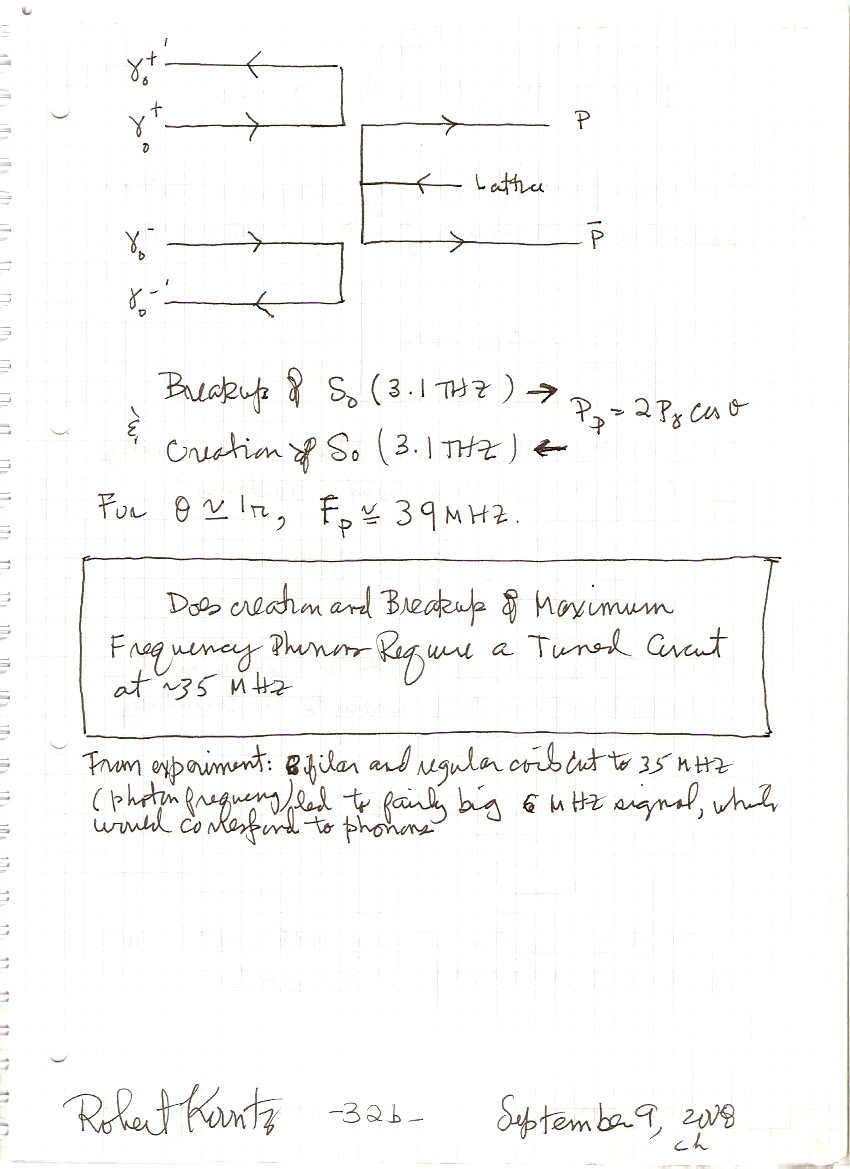 γ₀⁺'
γ₀⁺ P
Lattice
γ₀⁻ P̄
γ₀⁻'
Breakup of S₀ (3.1 THZ) →
& P_P = 2P_γ cos θ
Creation of S₀ (3.1 THZ) ←
For θ ≃ , F_P ≃ 39 MHZ.
Does creation and Breakup of Maximum
Frequency Phonons Require a Tuned Circuit
at ~35 MHZ
From experiment: Bifilar and regular coils cut to 35 MHZ
(photon frequency) led to fairly big 6 MHZ signal, which
would correspond to phonons
Robert -32b- September 9, 2008